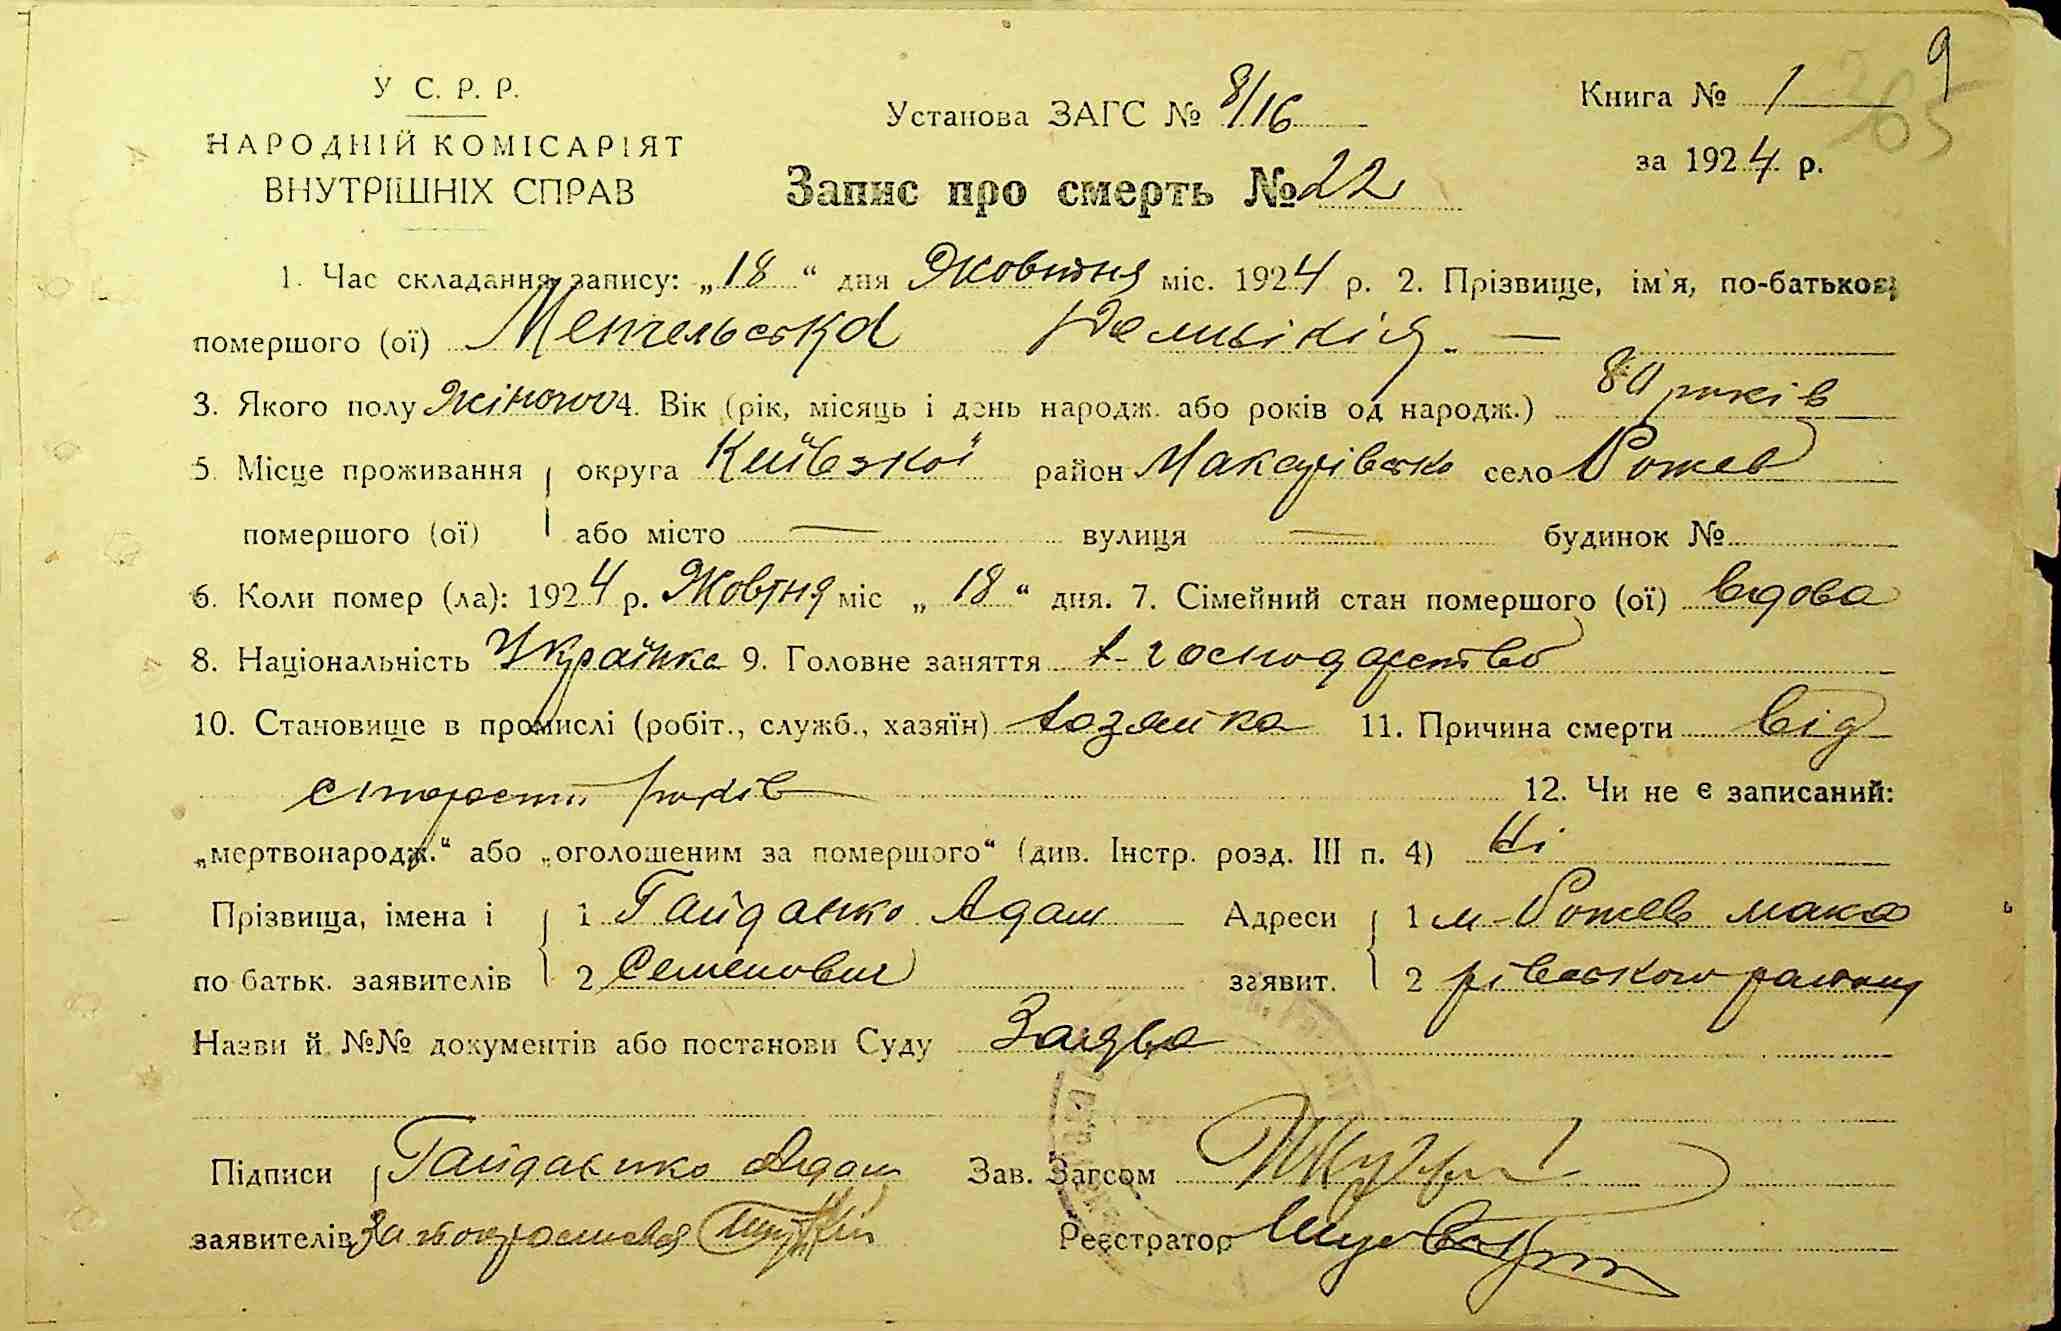 9
265
У С. Р. Р.
НАРОДНІЙ КОМІСАРІЯТ
ВНУТРІШНІХ СПРАВ
Установа ЗАГС № 8/16
Книга № 1
за 1924 р.
Запис про смерть № 22
1. Час складання запису: „18“ дня Жовтня міс. 1924 р. 2. Прізвище, ім'я, по-батькові
помершого (ої) —
3. Якого полу жіночого 4. Вік (рік, місяць і день народж. або років од народж.) 80 років
5. Місце проживання округа Київської район Макарівсько село
помершого (ої) або місто — вулиця — будинок №
6. Коли помер (ла): 1924 р. Жовтня міс „18“ дня. 7. Сімейний стан помершого (ої) вдова
8. Національність Українка 9. Головне заняття х-господарство
10. Становище в промислі (робіт., служб., хазяїн) хозяйка 11. Причина смерти від
старости років 12. Чи не є записаний:
„мертвонародж.“ або „оголошеним за помершого“ (див. Інстр. розд. III п. 4) Ні
Прізвища, імена і 1 Гайданко Адам Адреси 1 м- мака
по батьк. заявителів 2 Семенович заявит. 2 рівського району
Назви й №№ документів або постанови Суду Заява
Підписи Адам Зав. Загсом
заявителів За Реєстратор